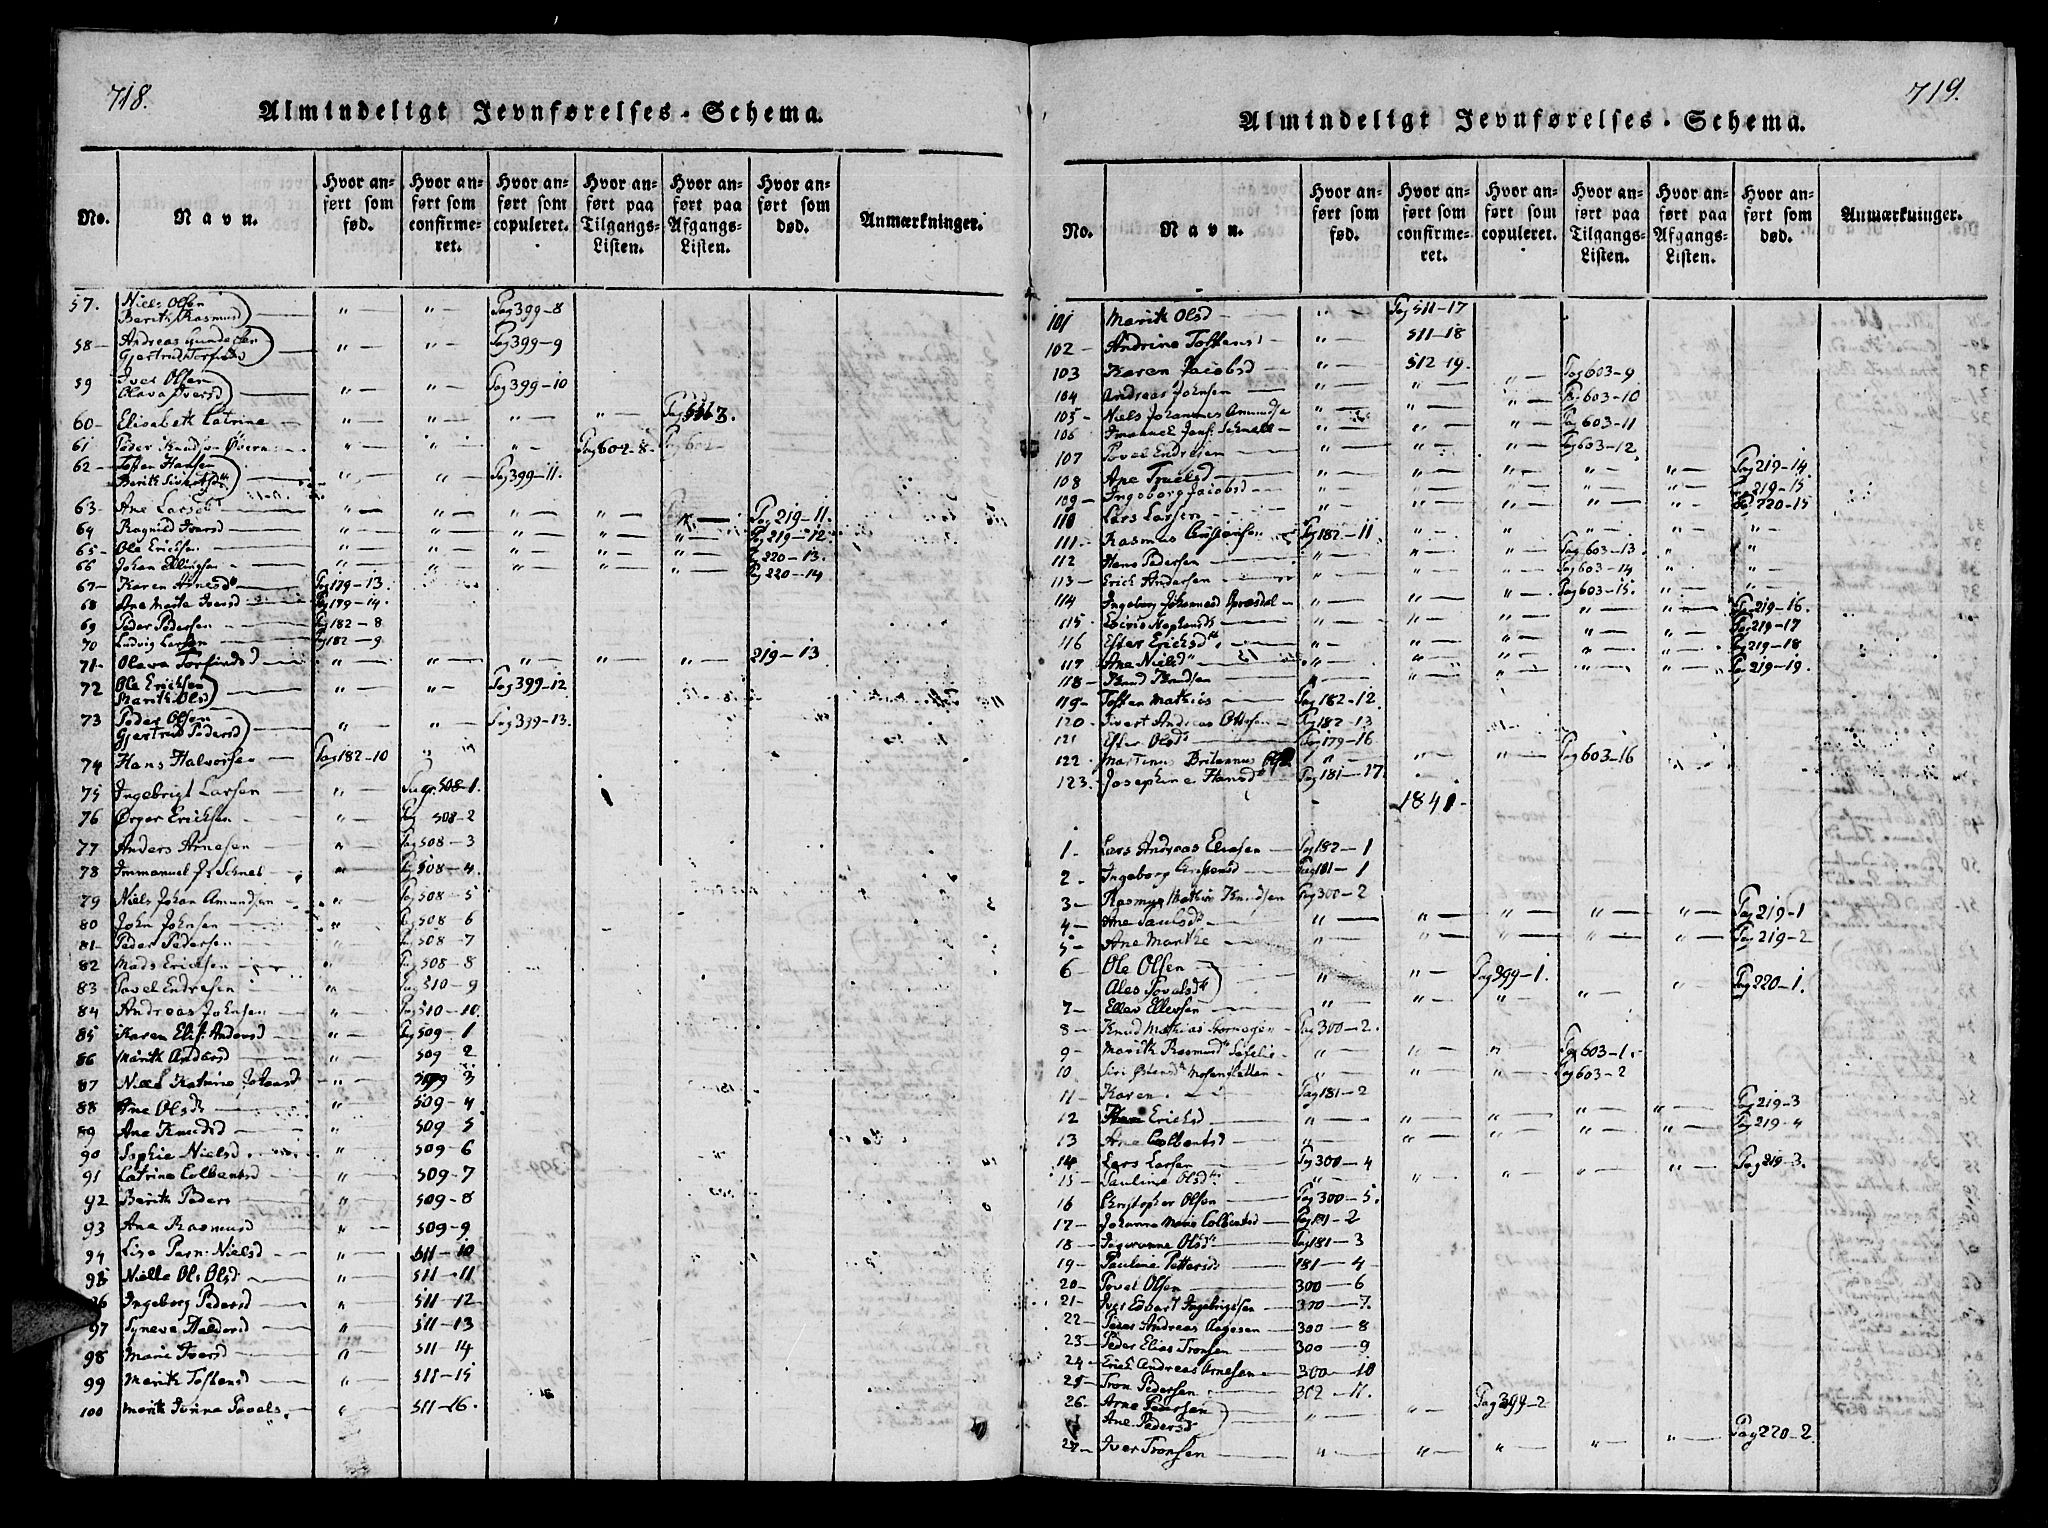 718.
Almindeligt Jevnførelses-Schema.
No. Navn. Hvor anført som fød. Hvor anført som confirmeret. Hvor anført som copuleret. Hvor anført paa Tilgangs-Listen. Hvor anført paa Afgangs-Listen. Hvor anført som død. Anmærkninger.
57. Niels Olsen
Berith Rasmusd " — " — Pag 399-8
58 - Andreas Gundersen
Gjertrud Torfinsd " — " — Pag 399-9
59 Iver Olsen
Olava Iversd " — " — Pag 399-10
60 - Elisabeth Catrine " — " — " — " —
61 Peder Knudsen " — " — " — Pag 602-8. Pag 602
62 - Tosten Hansen
Berith " — " — Pag 399-11.
63 - Ane Larsd " — " — " — " — " — Pag 219-11.
64 Ragnild Iversd " — " — " — " — " — Pag 219-12.
65 - Ole Ericksen " — " — " — " — " — Pag 220-13.
66 Johan Ellingsen " — " — " — " — " — Pag 220-14
67 - Karen Arnesd Pag 179-13.
68 Ane Marta Iversd Pag 179-14.
69 Peder Pedersen Pag 182-8
70 Ludvig Larsen Pag 182-9
71 - Olava Torfinsd " — " — " — " — " — 219-13
72 Ole Ericksen
Marith Olsd " — " — Pag 399-12
73 Peder Olsen
Gjertrud Pedersd " — " — Pag 399-13.
74 Hans Halvorsen Pag 182-10
75 Ingebrigt Larsen " — Pag 508-1.
76 Ørger Ericksen " — Pag 508-2
77 Anders Arnesen " Pag 508-3
78 Immanuel J. Schnel " — Pag 508-4.
79 Niels Johan Amundsen " — Pag 508-5
80 John Johnsen " — Pag 508-6
81 - Peder Pedersen " — Pag 508-7
82 Mads Ericksen " — Pag 508-8
83 - Povel Endresen " — Pag 510-9
84 Andreas Johnsen " — Pag 510-10.
85 Karen Elis: Andersd " — Pag 509-1
86 Marith Andersd " — 509-2
87 Nicol Katrine Johansd " — 509-3
88 Ane Olsd " — 509-4
89 Ane Knudsd " — 509-5
90 Sophie Nielsd " — 509-6
91 Catrine Colbentsd " — 509-7
92 Berith Peders " — 509-8
93 Ane Rasmusd " — 509-9
94 Lise Pern: Nielsd " — 511-10
95 Nielle Ols Olsd " — 511-11
96 Ingeborg Pedersd " — 511-12
97 Syneva Haldorsd " — 511-13
98 Marie Iversd " — 511-14
99 Marith Tostensd " — 511-15
100 Marith Ivnna Povels " — 511-16.
719.
Almindeligt Jevnførelses-Schema.
No. Navn. Hvor anført som fød. Hvor anført som confirmeret. Hvor anført som copuleret. Hvor anført paa Tilgangs-Listen. Hvor anført paa Afgangs-Listen. Hvor anført som død. Anmærkninger.
101 Marith Olsd " — Pag 511-17
102 - Andrine Tostensd " — 511-18
103 Karen Jacobsd " — 512-19.
104 Andreas Johnsen " — " — " — Pag 603-9
105 - Niels Johannes Amundsen " — " — " — Pag 603-10
106 Imanuel Schnell " — " — " — Pag 603-11
107 Povel Endresen " — " — " — Pag 603-12
108 Ane Truelsd " — " — " — " — " — Pag 219-14
109 - Ingeborg Jacobsd " — " — " — " — " — Pag 219-15
110 Lars Larsen " — " — " — " — " — Pag 220-15
111. Rasmus Cristiansen Pag 182-11
112 Hans Pedersen " — " — " — Pag 603-13.
113 - Erick Andersen " — " — " — Pag 603-14
114 Ingeborg Johannesd " — " — " — Pag 603-15.
115 - " — " — " — " — " — Pag 219-16.
116 Ester Ericksd " — " — " — " — " — Pag 219-17
117 Ane Nielsd " — " — " — " — " — Pag 219-18
118 - Knud Knudsen " — " — " — " — " — Pag 219-19.
119 - Tosten Mathias Pag 182-12.
120 Sivert Andreas Ottesen Pag 182-13
121 Ester Olsd Pag 179-16
122 Martinus Britannus " — " — " — Pag 603-16
123. Josephine Hansd Pag 181-17.
1841.
1 - Lars Andreas Eliasen Pag 182-1
2 - Ingeborg Cristensd Pag 181-1
3 - Rasmus Mathias Knudsen Pag 300-2
4 - Ane Paulsd " — " — " — " — " — Pag 219-1
5 - Ane Marthe " — " — " — " — " — Pag 219-2
6 - Ole Olsen
Ales Povelsd " — " — Pag 399-1.
7 - Ellev Ellevsen " — " — " — " — " — Pag 220-1.
8 - Knud Mathias Pag 300-2.
9 - Marith Rasmusd " — " — " — Pag 603-1.
10 Siri Østensd " — " — " — Pag 603-2
11 - Karen Pag 181-2
12 Ericksd " — " — " — " — " — Pag 219-3
13 Ane Colbentsd " — " — " — " — " — Pag 219-4
14 Lars Larsen Pag 300-4
15 - Pauline Olsd " — " — " — " — " — Pag 219-3.
16 Christopher Olsen Pag 300-5.
17 - Johanne Marie Colbentsd Pag 181-2
18 - Olsd Pag 181-3
19 - Pauline Pettersd 181-4
20 - Povel Olsen 300-6
21 - Iver Edvart Ingebrigtsen 300-7.
22 Peter Andreas Aagesen 300-8
23 Peder Elias Tronsen 300-9
24 - Erich Andreas Arnesen 300-10
25 - Tron Pedersen 302-11.
26 - Arne Pedersen
Ane Pedersd " — " — Pag 399-2
27 - Iver Tronsen " " — " — " — " — Pag 220-2.